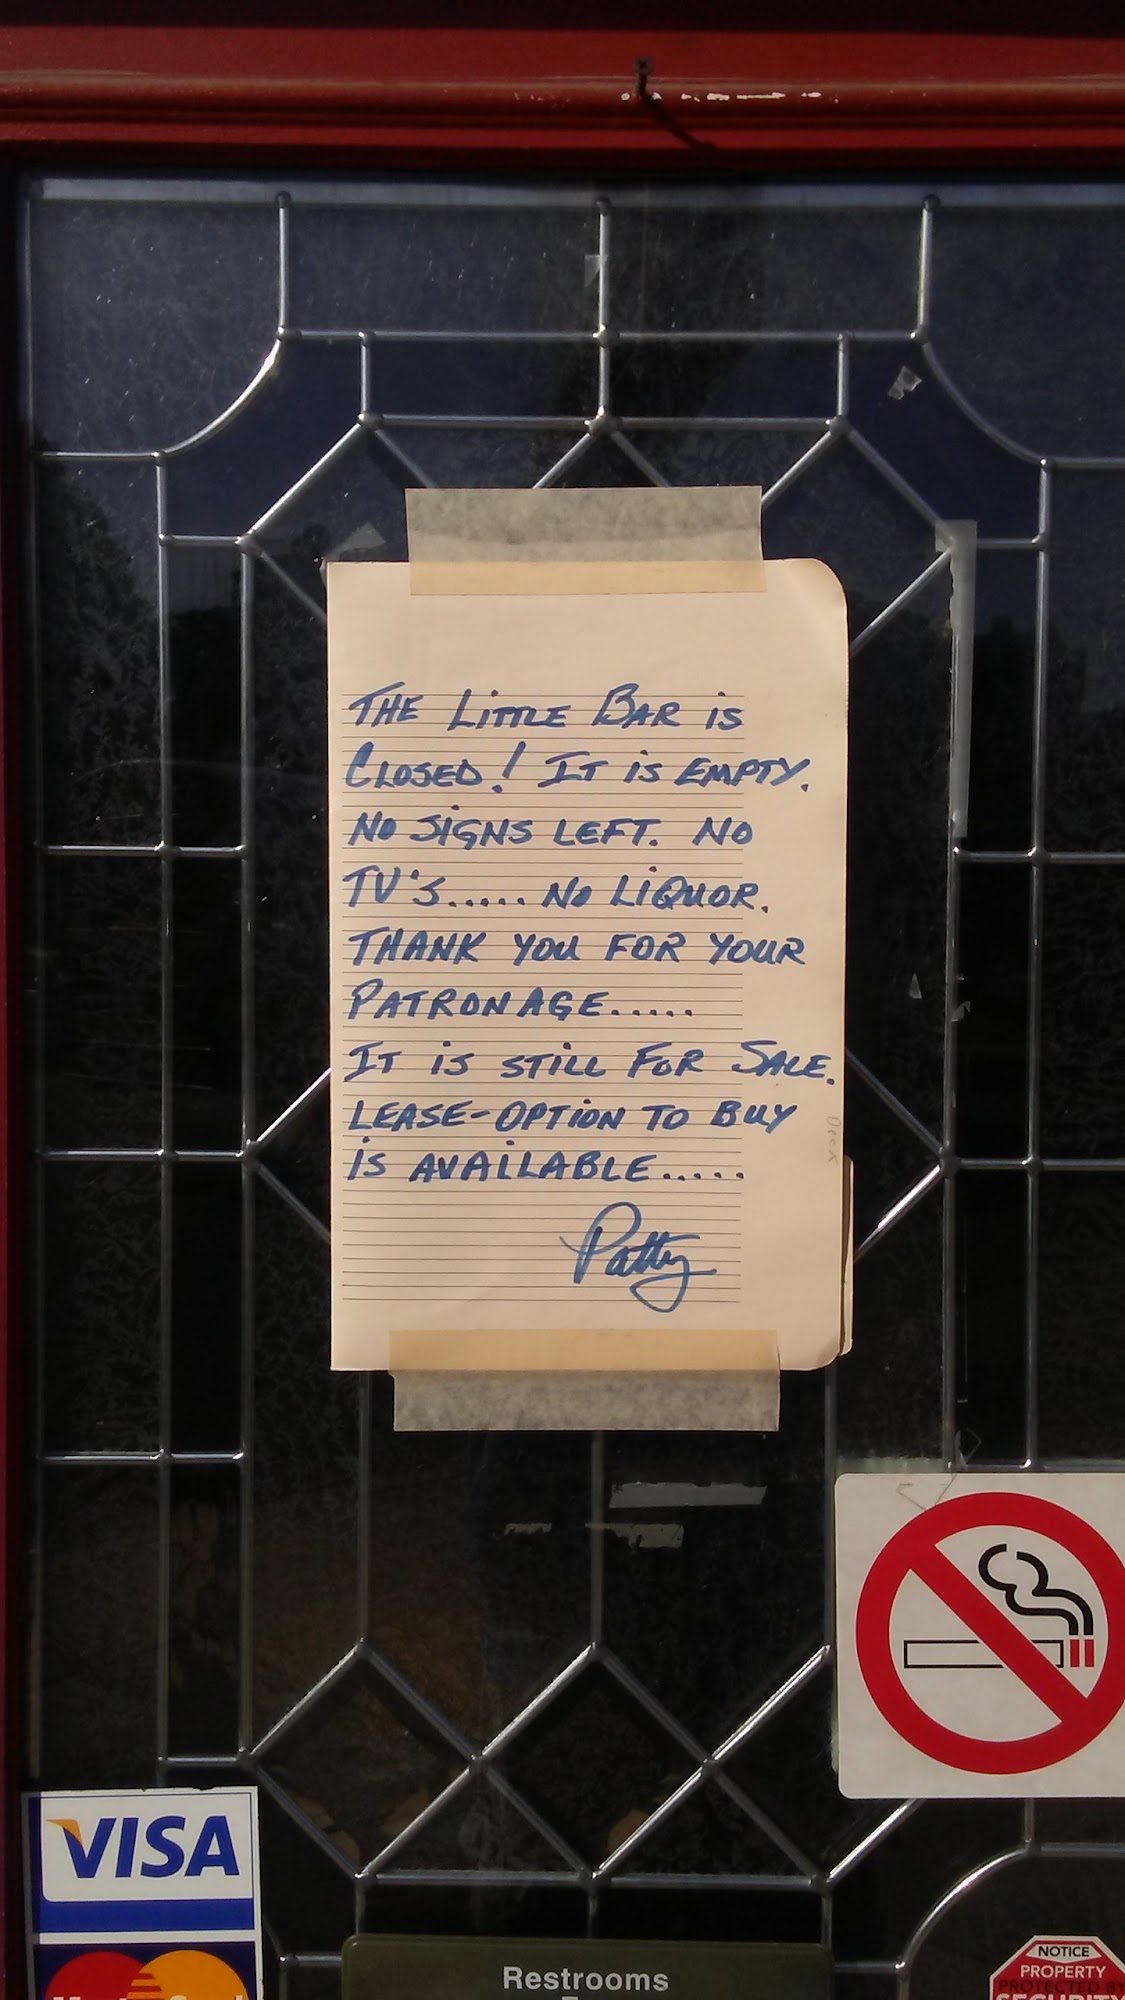 THE LITTLE BAR IS
CLOSED! IT IS EMPTY.
NO SIGNS LEFT. NO
TV'S..... NO LIQUOR.
THANK YOU FOR YOUR
PATRONAGE.....
IT IS STILL FOR SALE.
LEASE-OPTION TO BUY
IS AVAILABLE.....
Patty
VISA
Restrooms
NOTICE
PROPERTY
PROTECTED BY
SECURITY